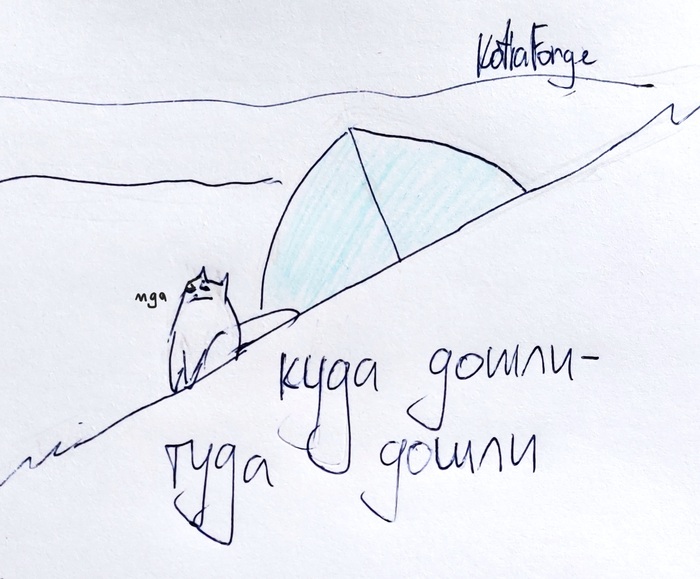 KotlaForge
мда
куда дошли-
туда дошли